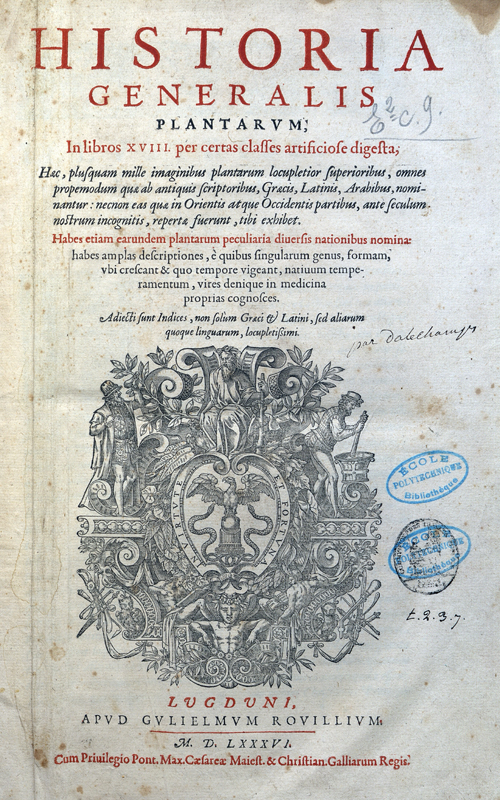 HISTORIA
GENERALIS
PLANTARVM,
E²c.9.
In libros XVIII. per certas classes artificiose digesta,
Hæc, plusquam mille imaginibus plantarum locupletior superioribus, omnes
propemodum quæ ab antiquis scriptoribus, Græcis, Latinis, Arabibus, nomi-
nantur: necnon eas quæ in Orientis atque Occidentis partibus, ante seculum
nostrum incognitis, repertæ fuerunt, tibi exhibet.
Habes etiam earundem plantarum peculiaria diuersis nationibus nomina:
habes amplas descriptiones, è quibus singularum genus, formam,
vbi crescant & quo tempore vigeant, natiuum tempe-
ramentum, vires denique in medicina
proprias cognosces.
Adiecti sunt Indices, non solum Græci & Latini, sed aliarum
quoque linguarum, locupletissimi.
par Dalechamps
IN VIRTVTE ET FORTVNA
ÉCOLE
POLYTECHNIQUE
Bibliothèque
t. 2. 3. 7.
LVGDVNI,
APVD GVLIELMVM ROVILLIVM,
M. D. LXXXVI.
Cum Priuilegio Pont. Max. Cæsareæ Maiest. & Christian. Galliarum Regis.